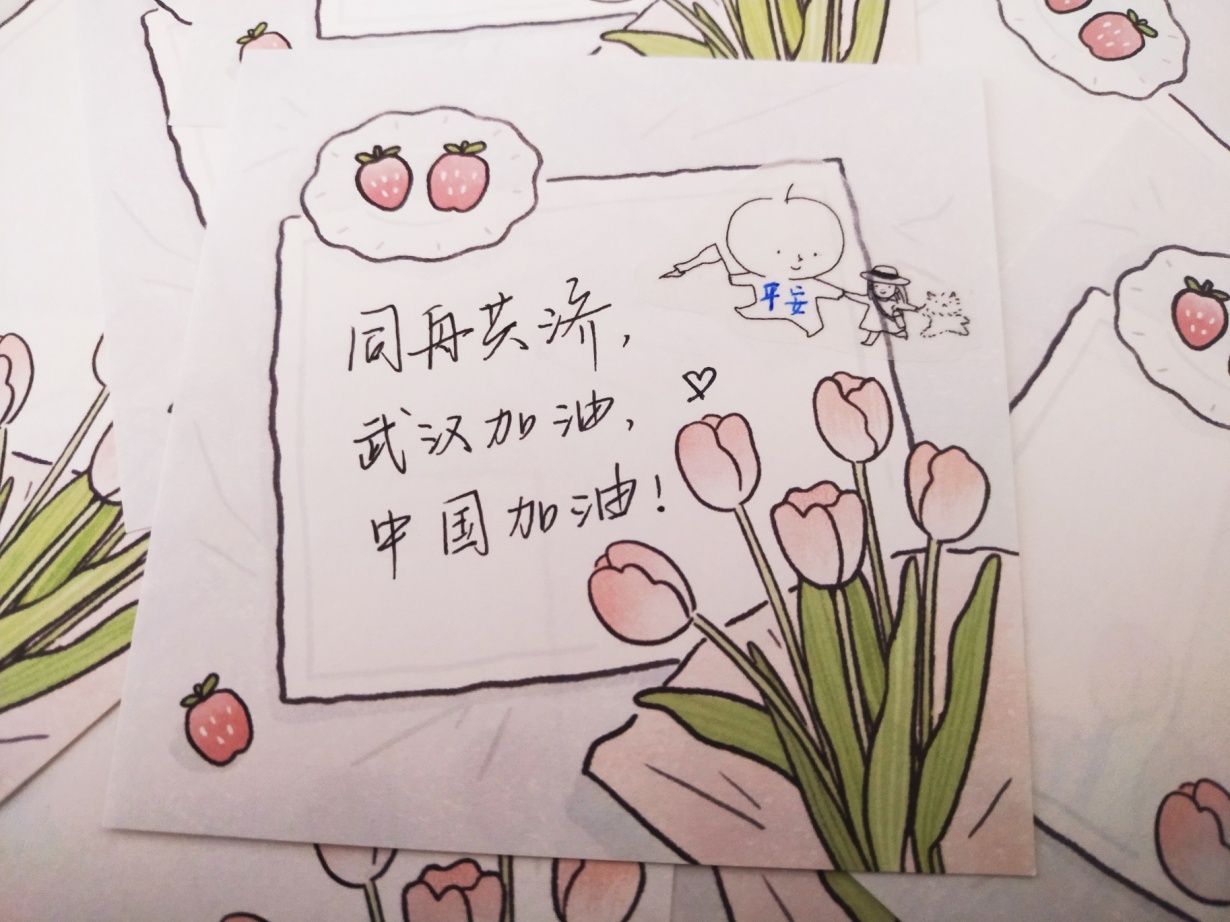 平安
同舟共济,
武汉加油,
中国加油!